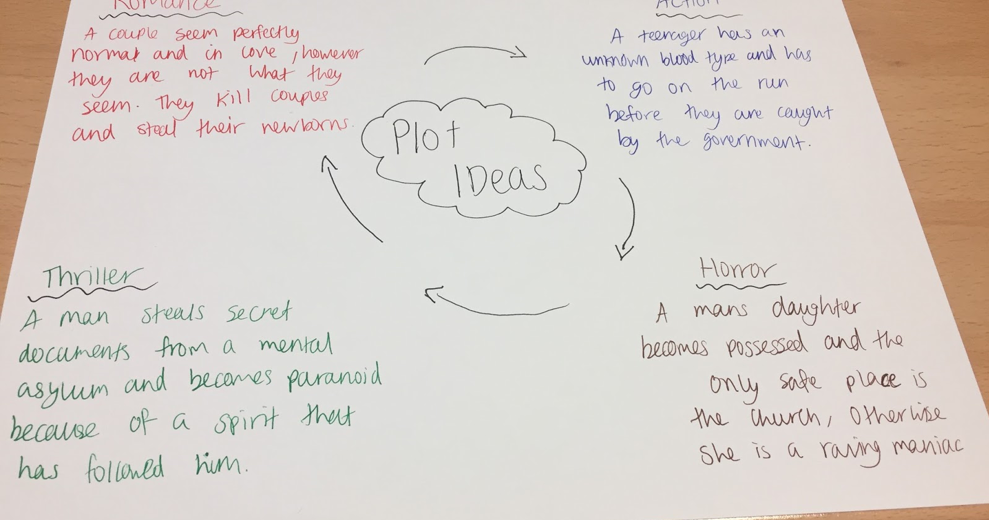 Romance
A couple seem perfectly
normal and in love, however
they are not what they
seem. They kill couples
and steal their newborns.
Action
A teenager has an
unknown blood type and has
to go on the run
before they are caught
by the government.
Plot
IDeas
Thriller
A man steals secret
documents from a mental
asylum and becomes paranoid
because of a spirit that
has followed him.
Horror
A mans daughter
becomes possessed and the
only safe place is
the church, otherwise
she is a raving maniac